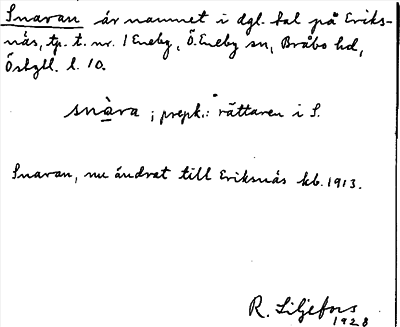 Snaran är namnet i dgl. tal på Eriks-
näs, tp. t. nr. 1 Eneby, Ö. Eneby sn, Bråbo hd,
Östgtl. l. 10.
snàra ; prepk.: rättaren i S.
Snaran, nu ändrat till Eriksnäs kb. 1913.
R. Liljefors
1928